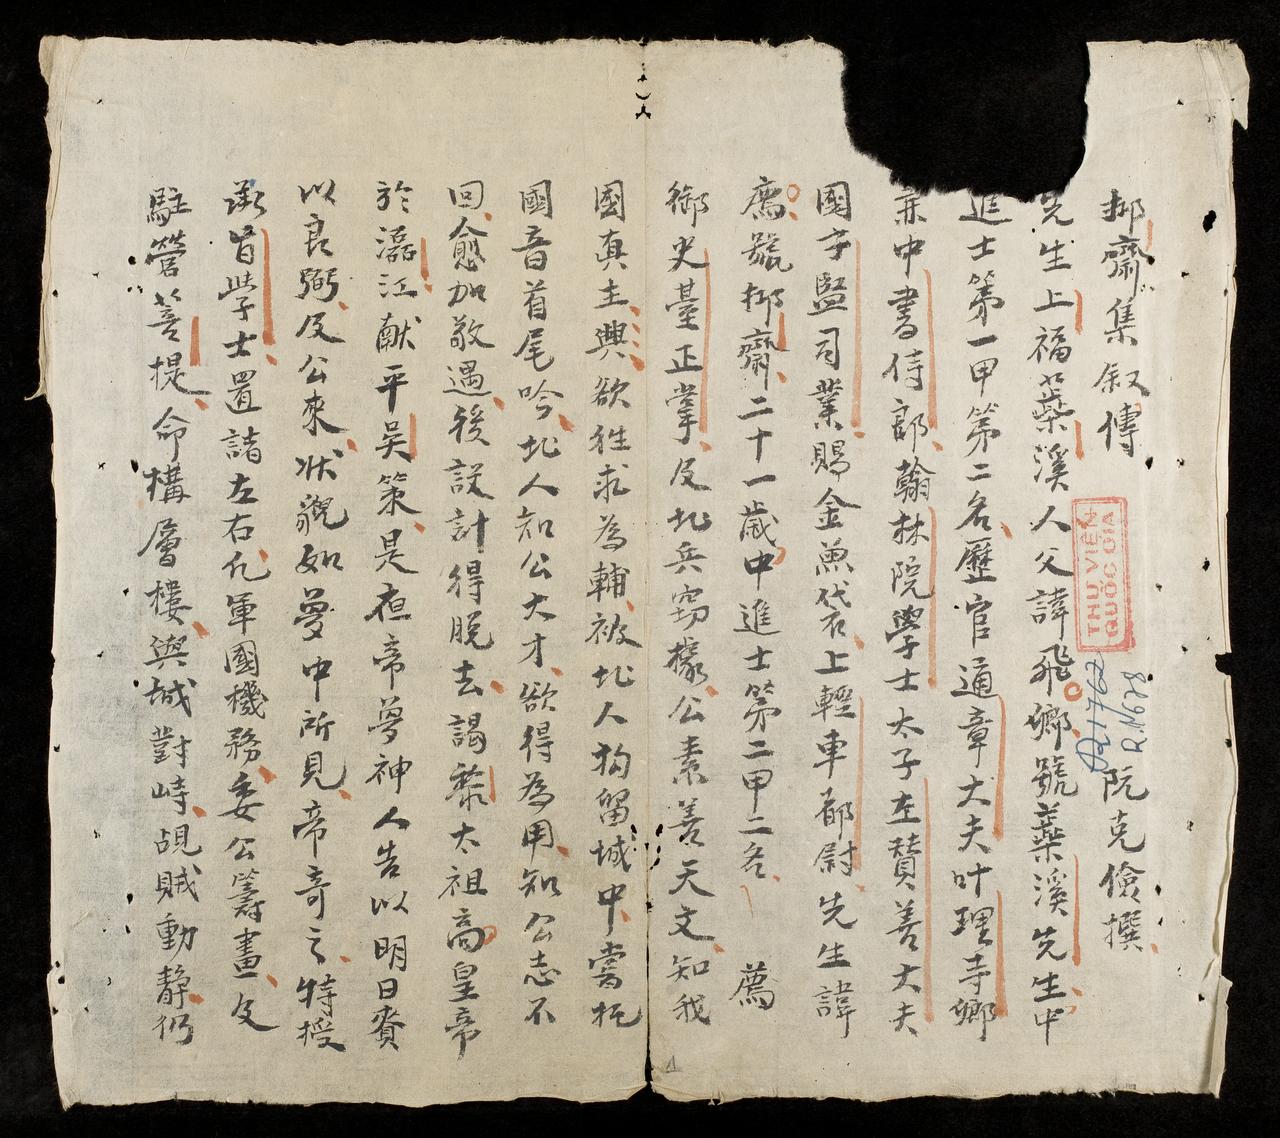 抑齋集叙傳 阮克儉撰
先生上福蘂溪人父諱飛卿號蘂溪先生中
進士第一甲第二名歷官通章大夫叶理寺卿
兼中書侍郎翰林院學士太子左贊善大夫
國子監司業賜金魚袋上輕車都尉先生諱
廌號抑齋二十一歲中進士第二甲二名 薦
御史臺正掌及北兵竊據公素善天文知我
國真主興欲往求為輔被北人拘留城中嘗托
國音首尾吟北人知公大才欲得為用知公志不
回愈加敬遇後設計得脫去謁黎太祖高皇帝
於㵢江献平吳策是夜帝夢神人告以明日賚
以良弼及公來狀貌如夢中所見帝奇之特授
承旨學士置諸左右凡軍國機務委公籌畫及
駐營菩提命構層樓與城對峙覘賊動静仍
THƯ VIỆN
QUỐC GIA
R.1762
R.N678